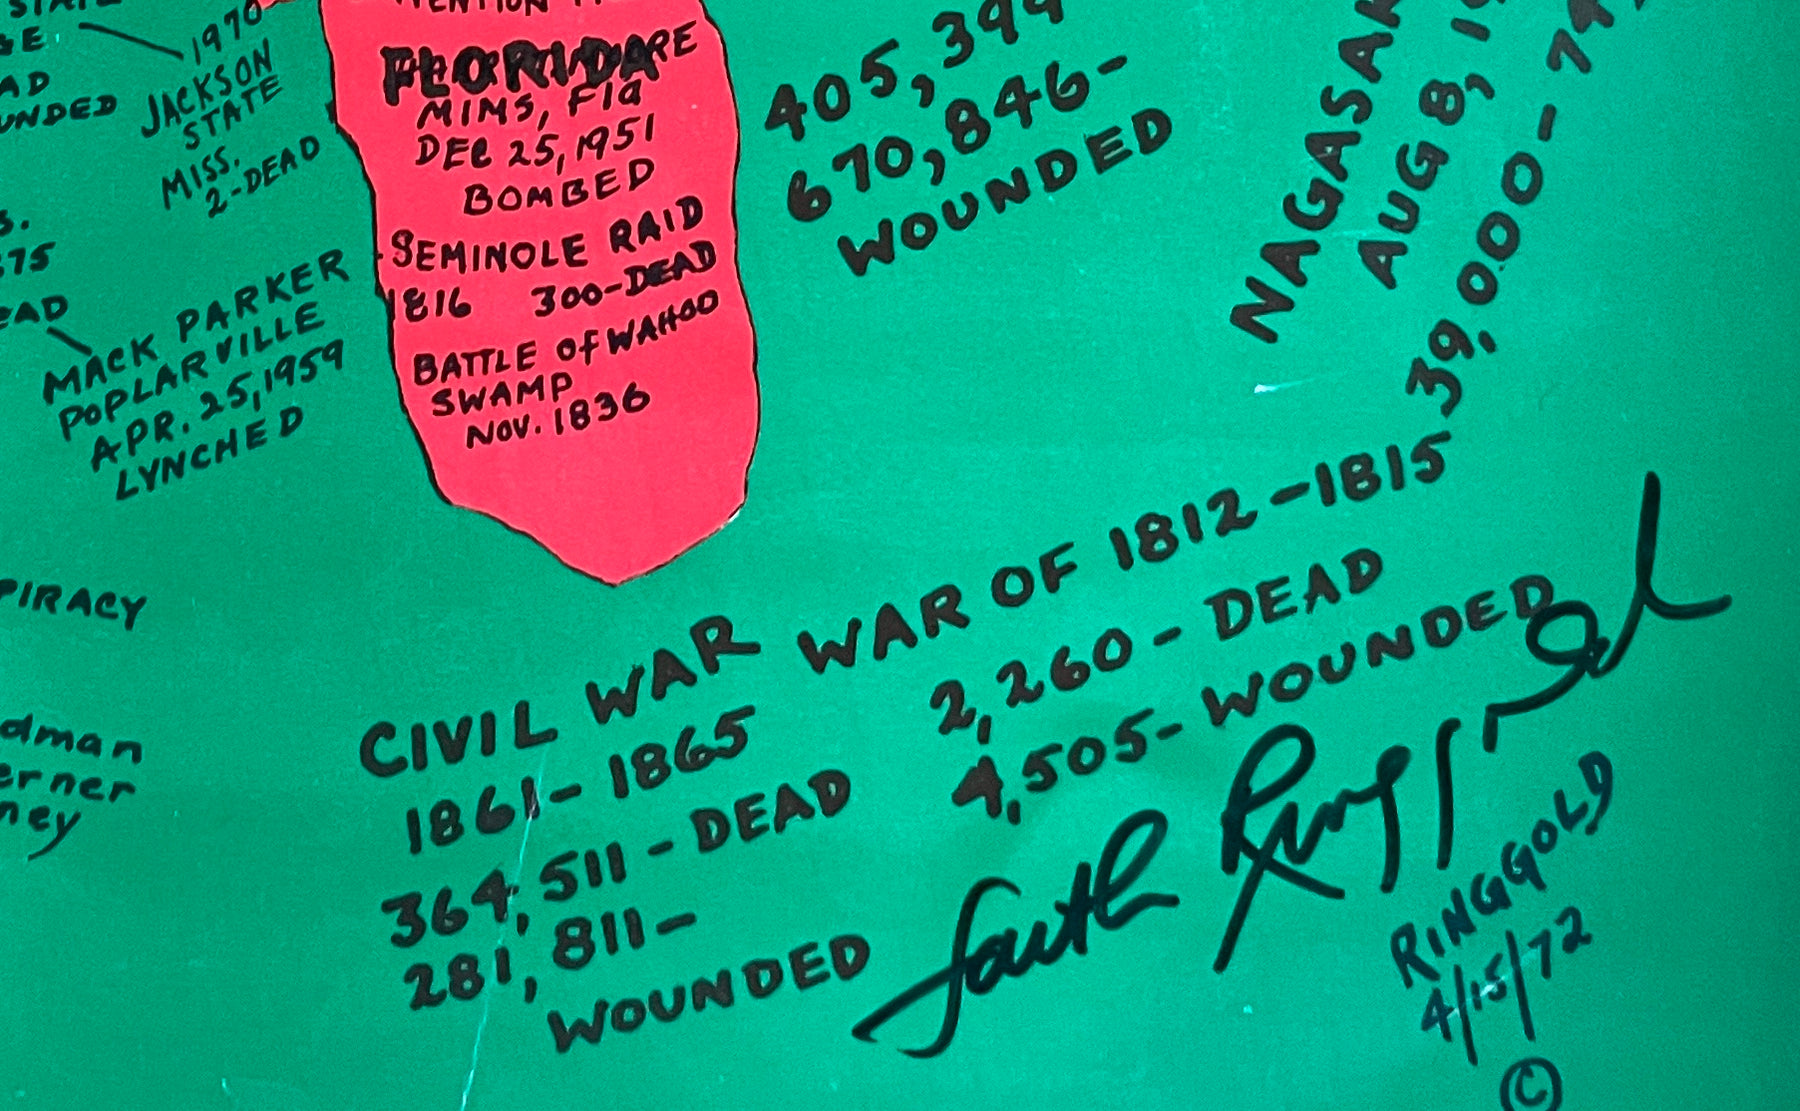 1970
JACKSON
STATE
MISS.
2-DEAD
75
MACK PARKER
POPLARVILLE
APR. 25, 1959
LYNCHED
FLORIDA
MIMS, Fla
DEC 25, 1951
BOMBED
SEMINOLE RAID
1816 300-DEAD
BATTLE of WAHOO
SWAMP
NOV. 1836
670,846-
WOUNDED
AUG 8,
39,000-
CIVIL WAR
1861-1865
364,511-DEAD
281,811-
WOUNDED
WAR OF 1812-1815
2,260-DEAD
4,505-WOUNDED
Faith Ringgold
RINGGOLD
4/15/72
©